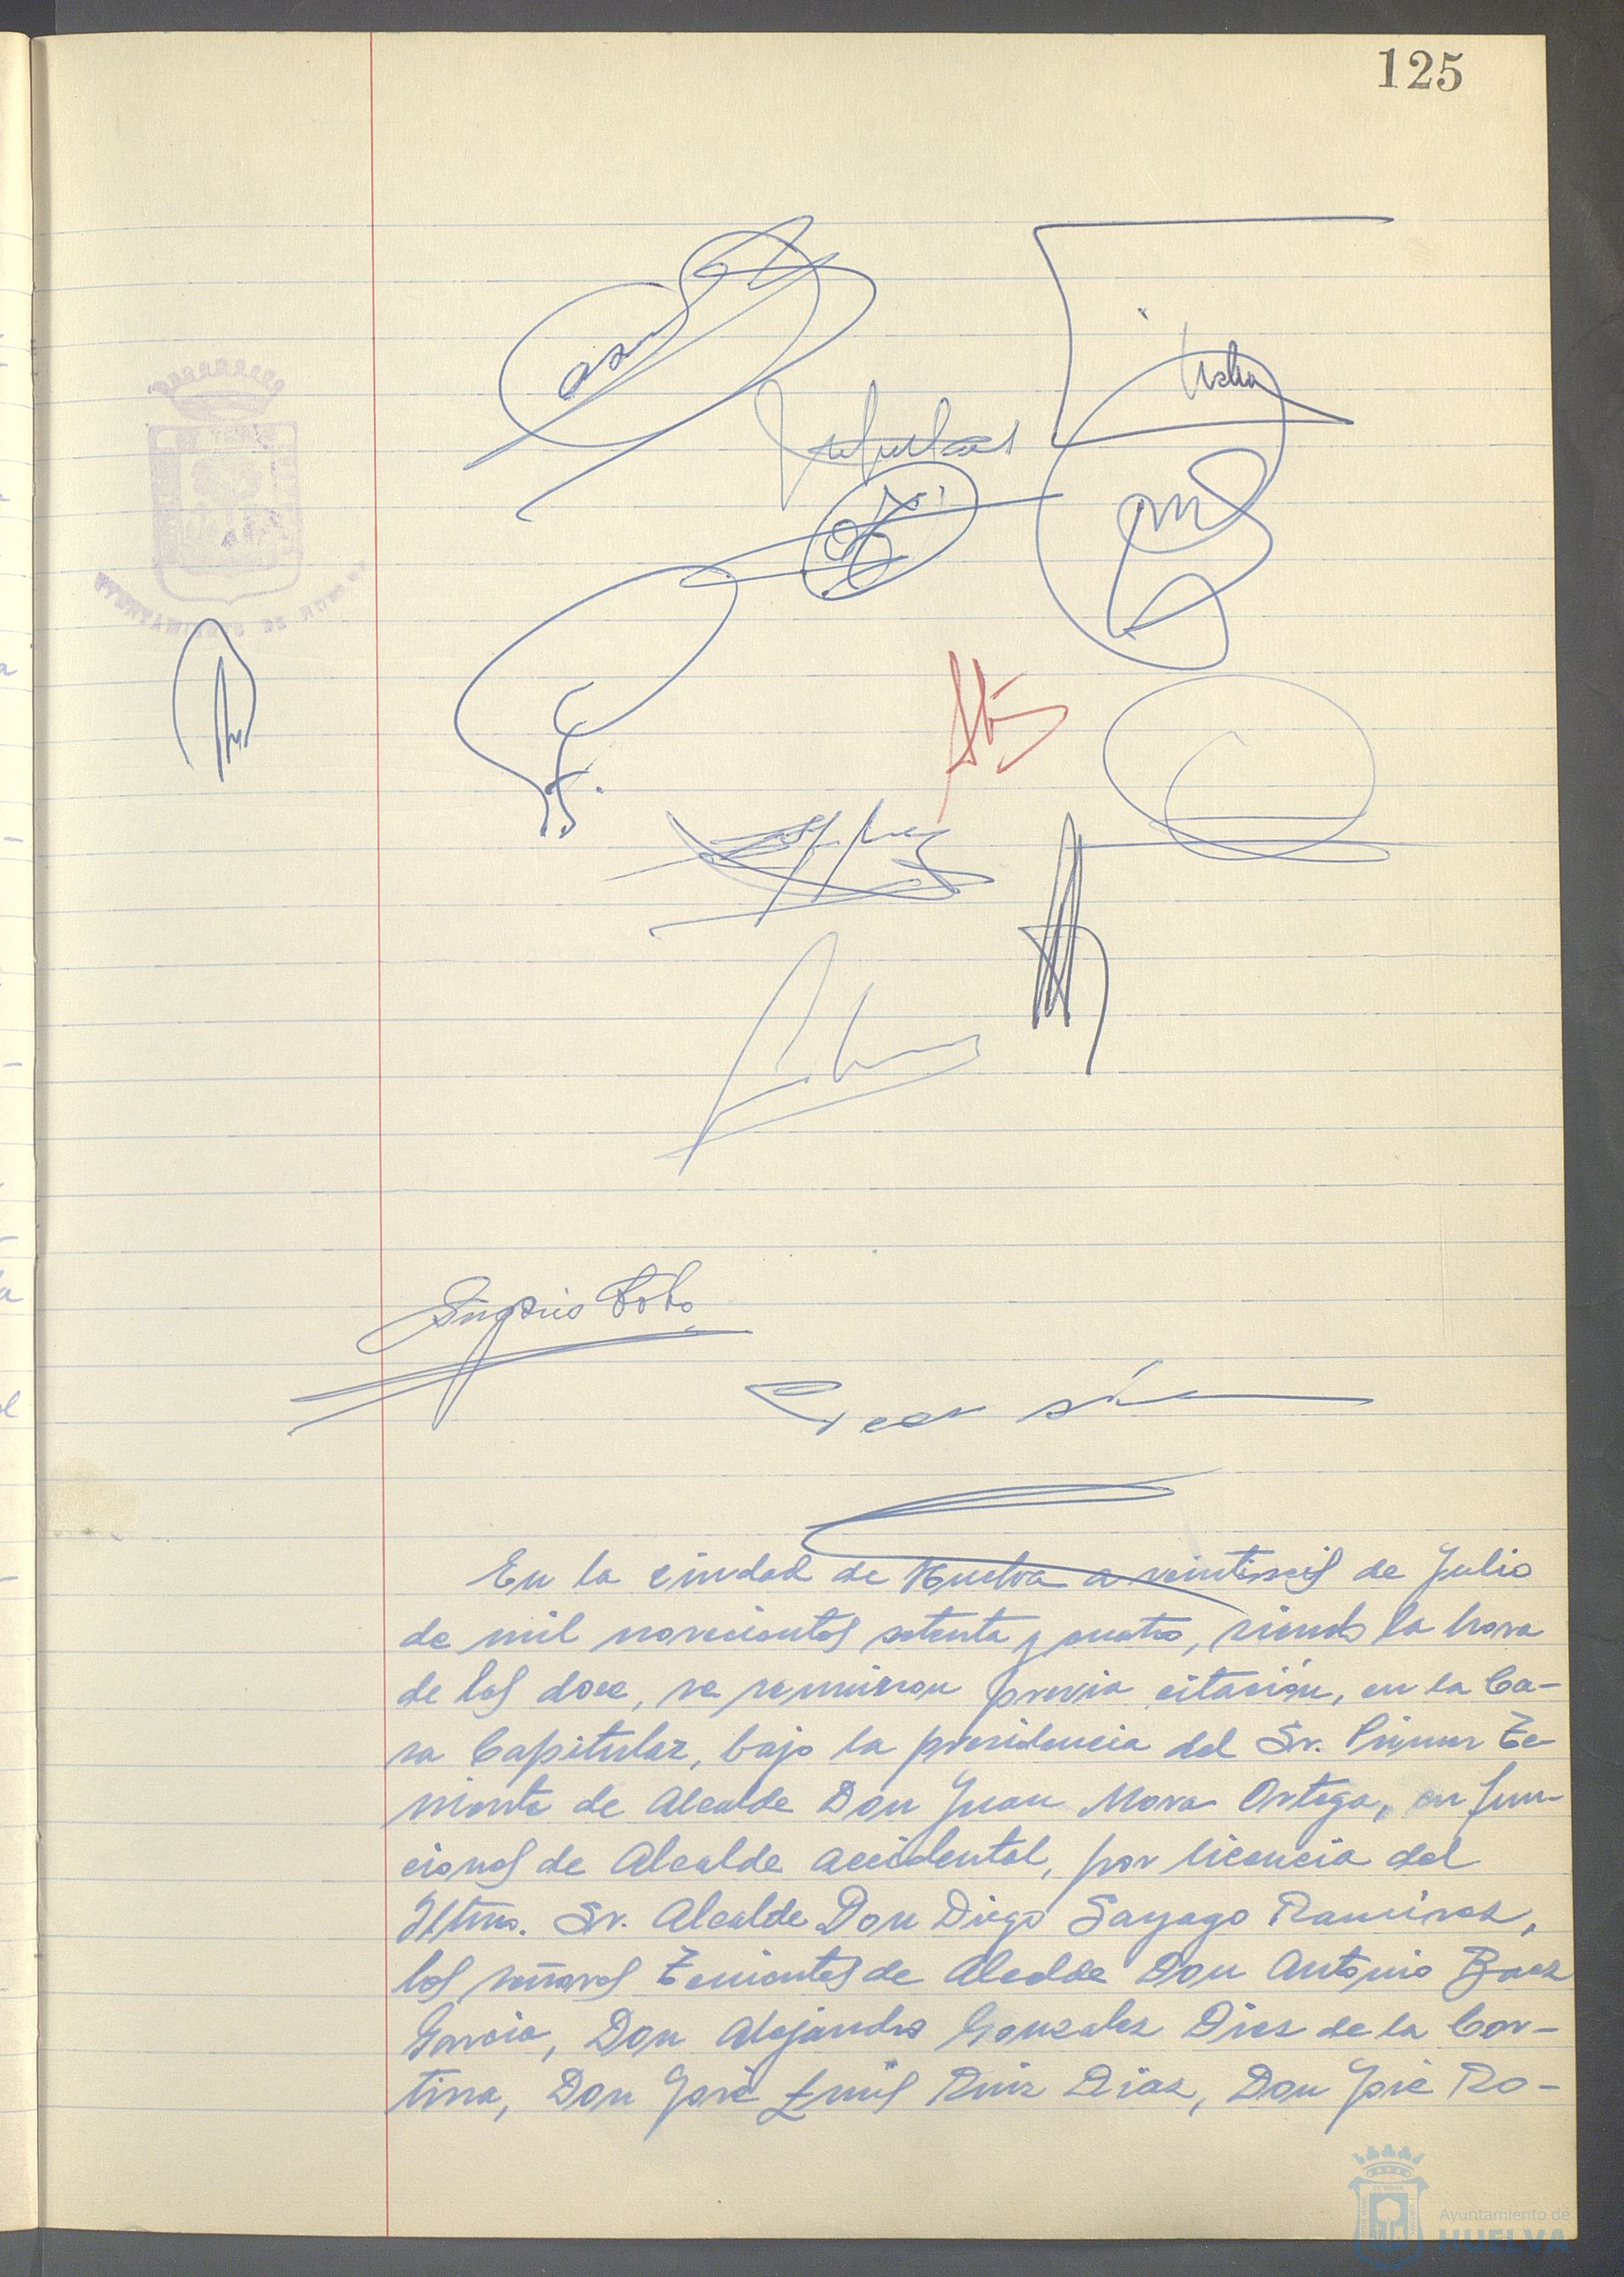 125
AYUNTAMIENTO DE HUELVA
Eugenio Bobo
En la ciudad de Huelva a veintiseis de Julio
de mil novecientos setenta y cuatro, siendo la hora
de las doce, se reunieron previa citación, en la Ca-
sa Capitular, bajo la presidencia del Sr. Primer Te
niente de Alcalde Don Juan Mora Ortega, en fun-
ciones de Alcalde accidental, por licencia del
Iltmo. Sr. Alcalde Don Diego Sayago Ramírez,
los señores Tenientes de Alcalde Don Antonio Baez
Garcia, Don Alejandro Gonzalez Diez de la Cor-
tina, Don José Luis Ruiz Díaz, Don José Ro-
Ayuntamiento de
HUELVA